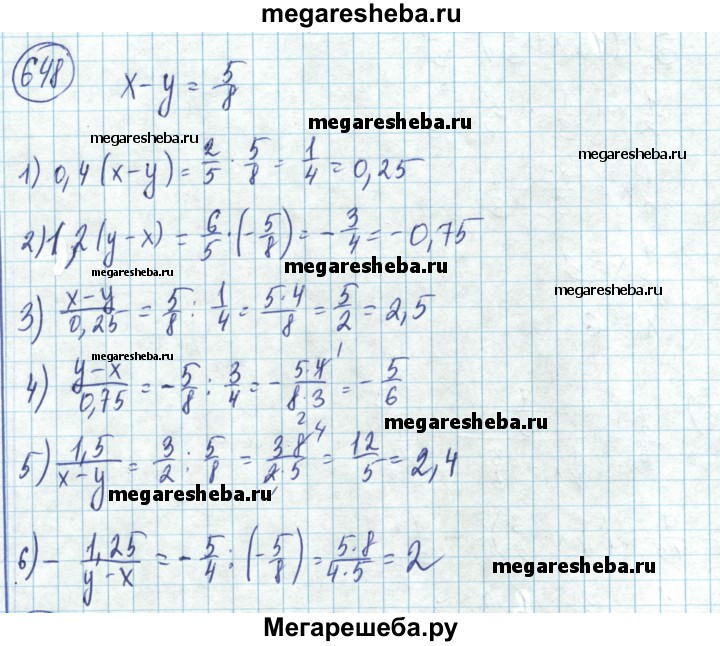 megaresheba.ru
648 x - y = 5/8
megaresheba.ru
megaresheba.ru
megaresheba.ru
1) 0,4 (x - y) = 2/5 · 5/8 = 1/4 = 0,25
2) 1,2 (y - x) = 6/5 · (-5/8) = -3/4 = -0,75
megaresheba.ru
megaresheba.ru
megaresheba.ru
3) x-y/0,25 = 5/8 : 1/4 = 5·4/8 = 5/2 = 2,5
megaresheba.ru
4) y-x/0,75 = -5/8 : 3/4 = -5·4 1/8·3 2 = -5/6
megaresheba.ru
5) 1,5/x-y = 3/2 : 5/8 = 3·8 4/2·5 1 = 12/5 = 2,4
megaresheba.ru
megaresheba.ru
6) - 1,25/y-x = -5/4 : (-5/8) = 5·8/4·5 = 2
megaresheba.ru
Мегарешеба.ру